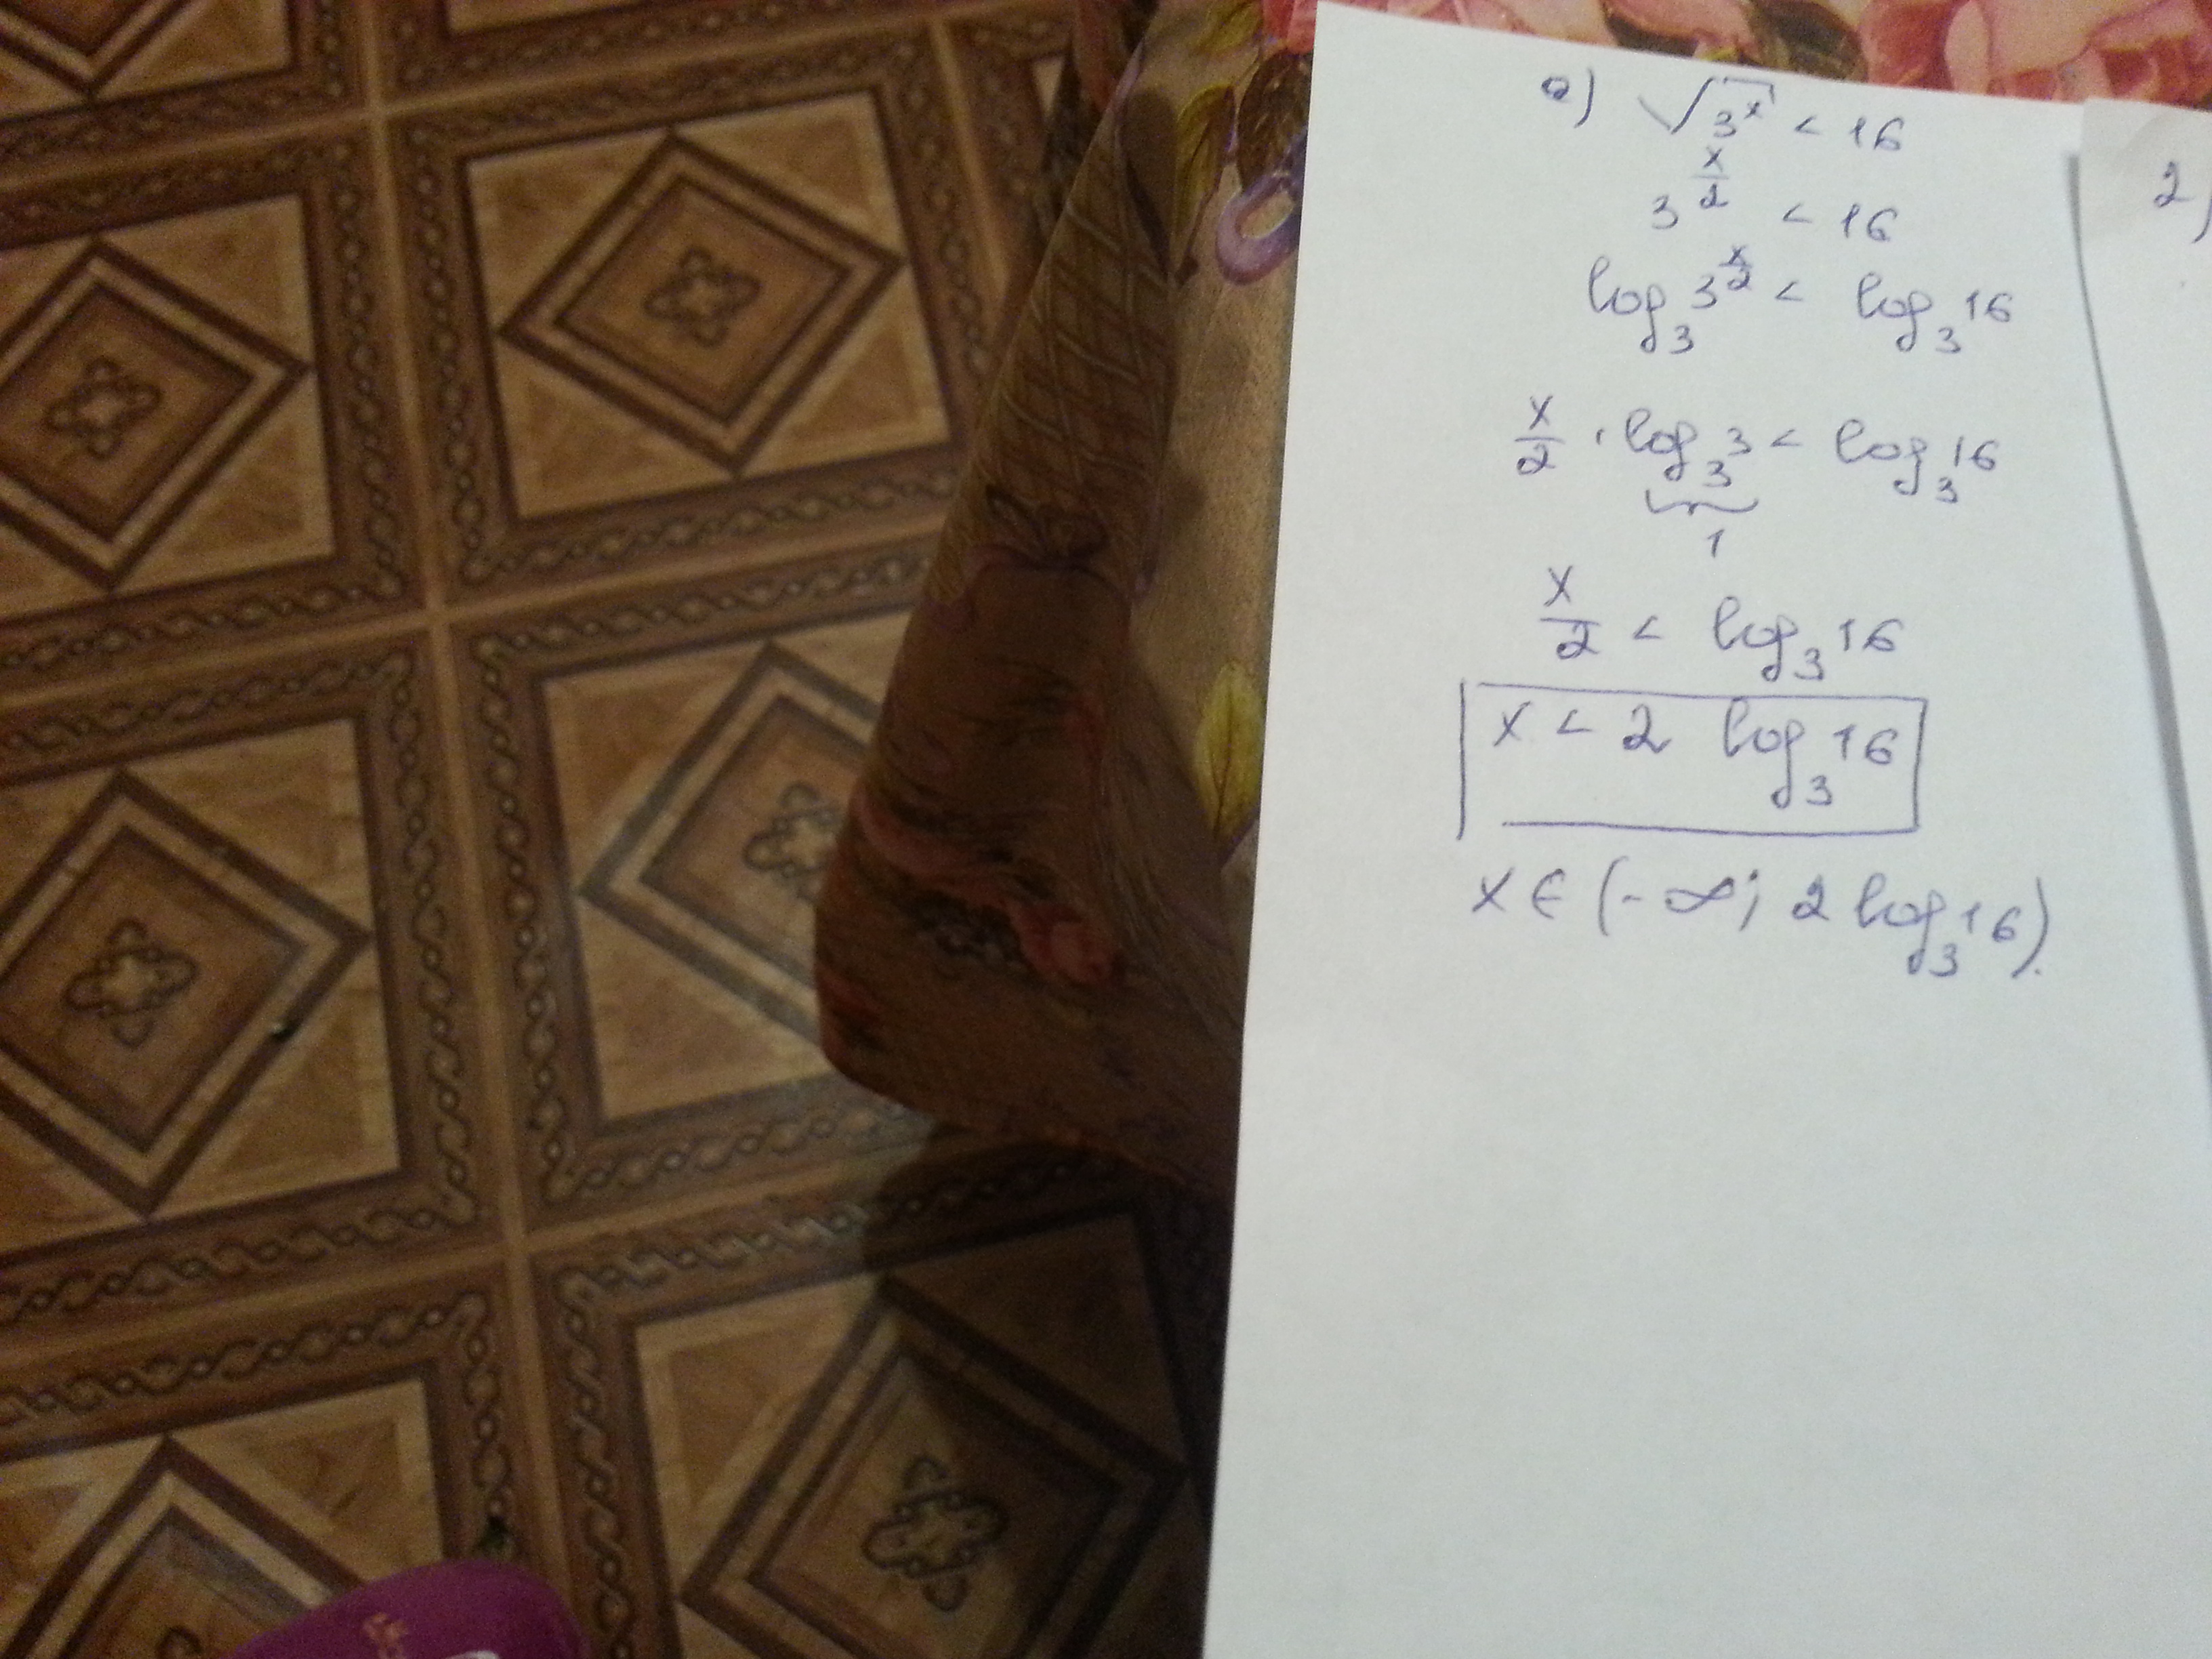 a) √3^x < 16
3^(x/2) < 16
log_3 3^(x/2) < log_3 16
x/2 · log_3 3 < log_3 16
1
x/2 < log_3 16
x < 2 log_3 16
x ∈ (-∞; 2 log_3 16).
2)